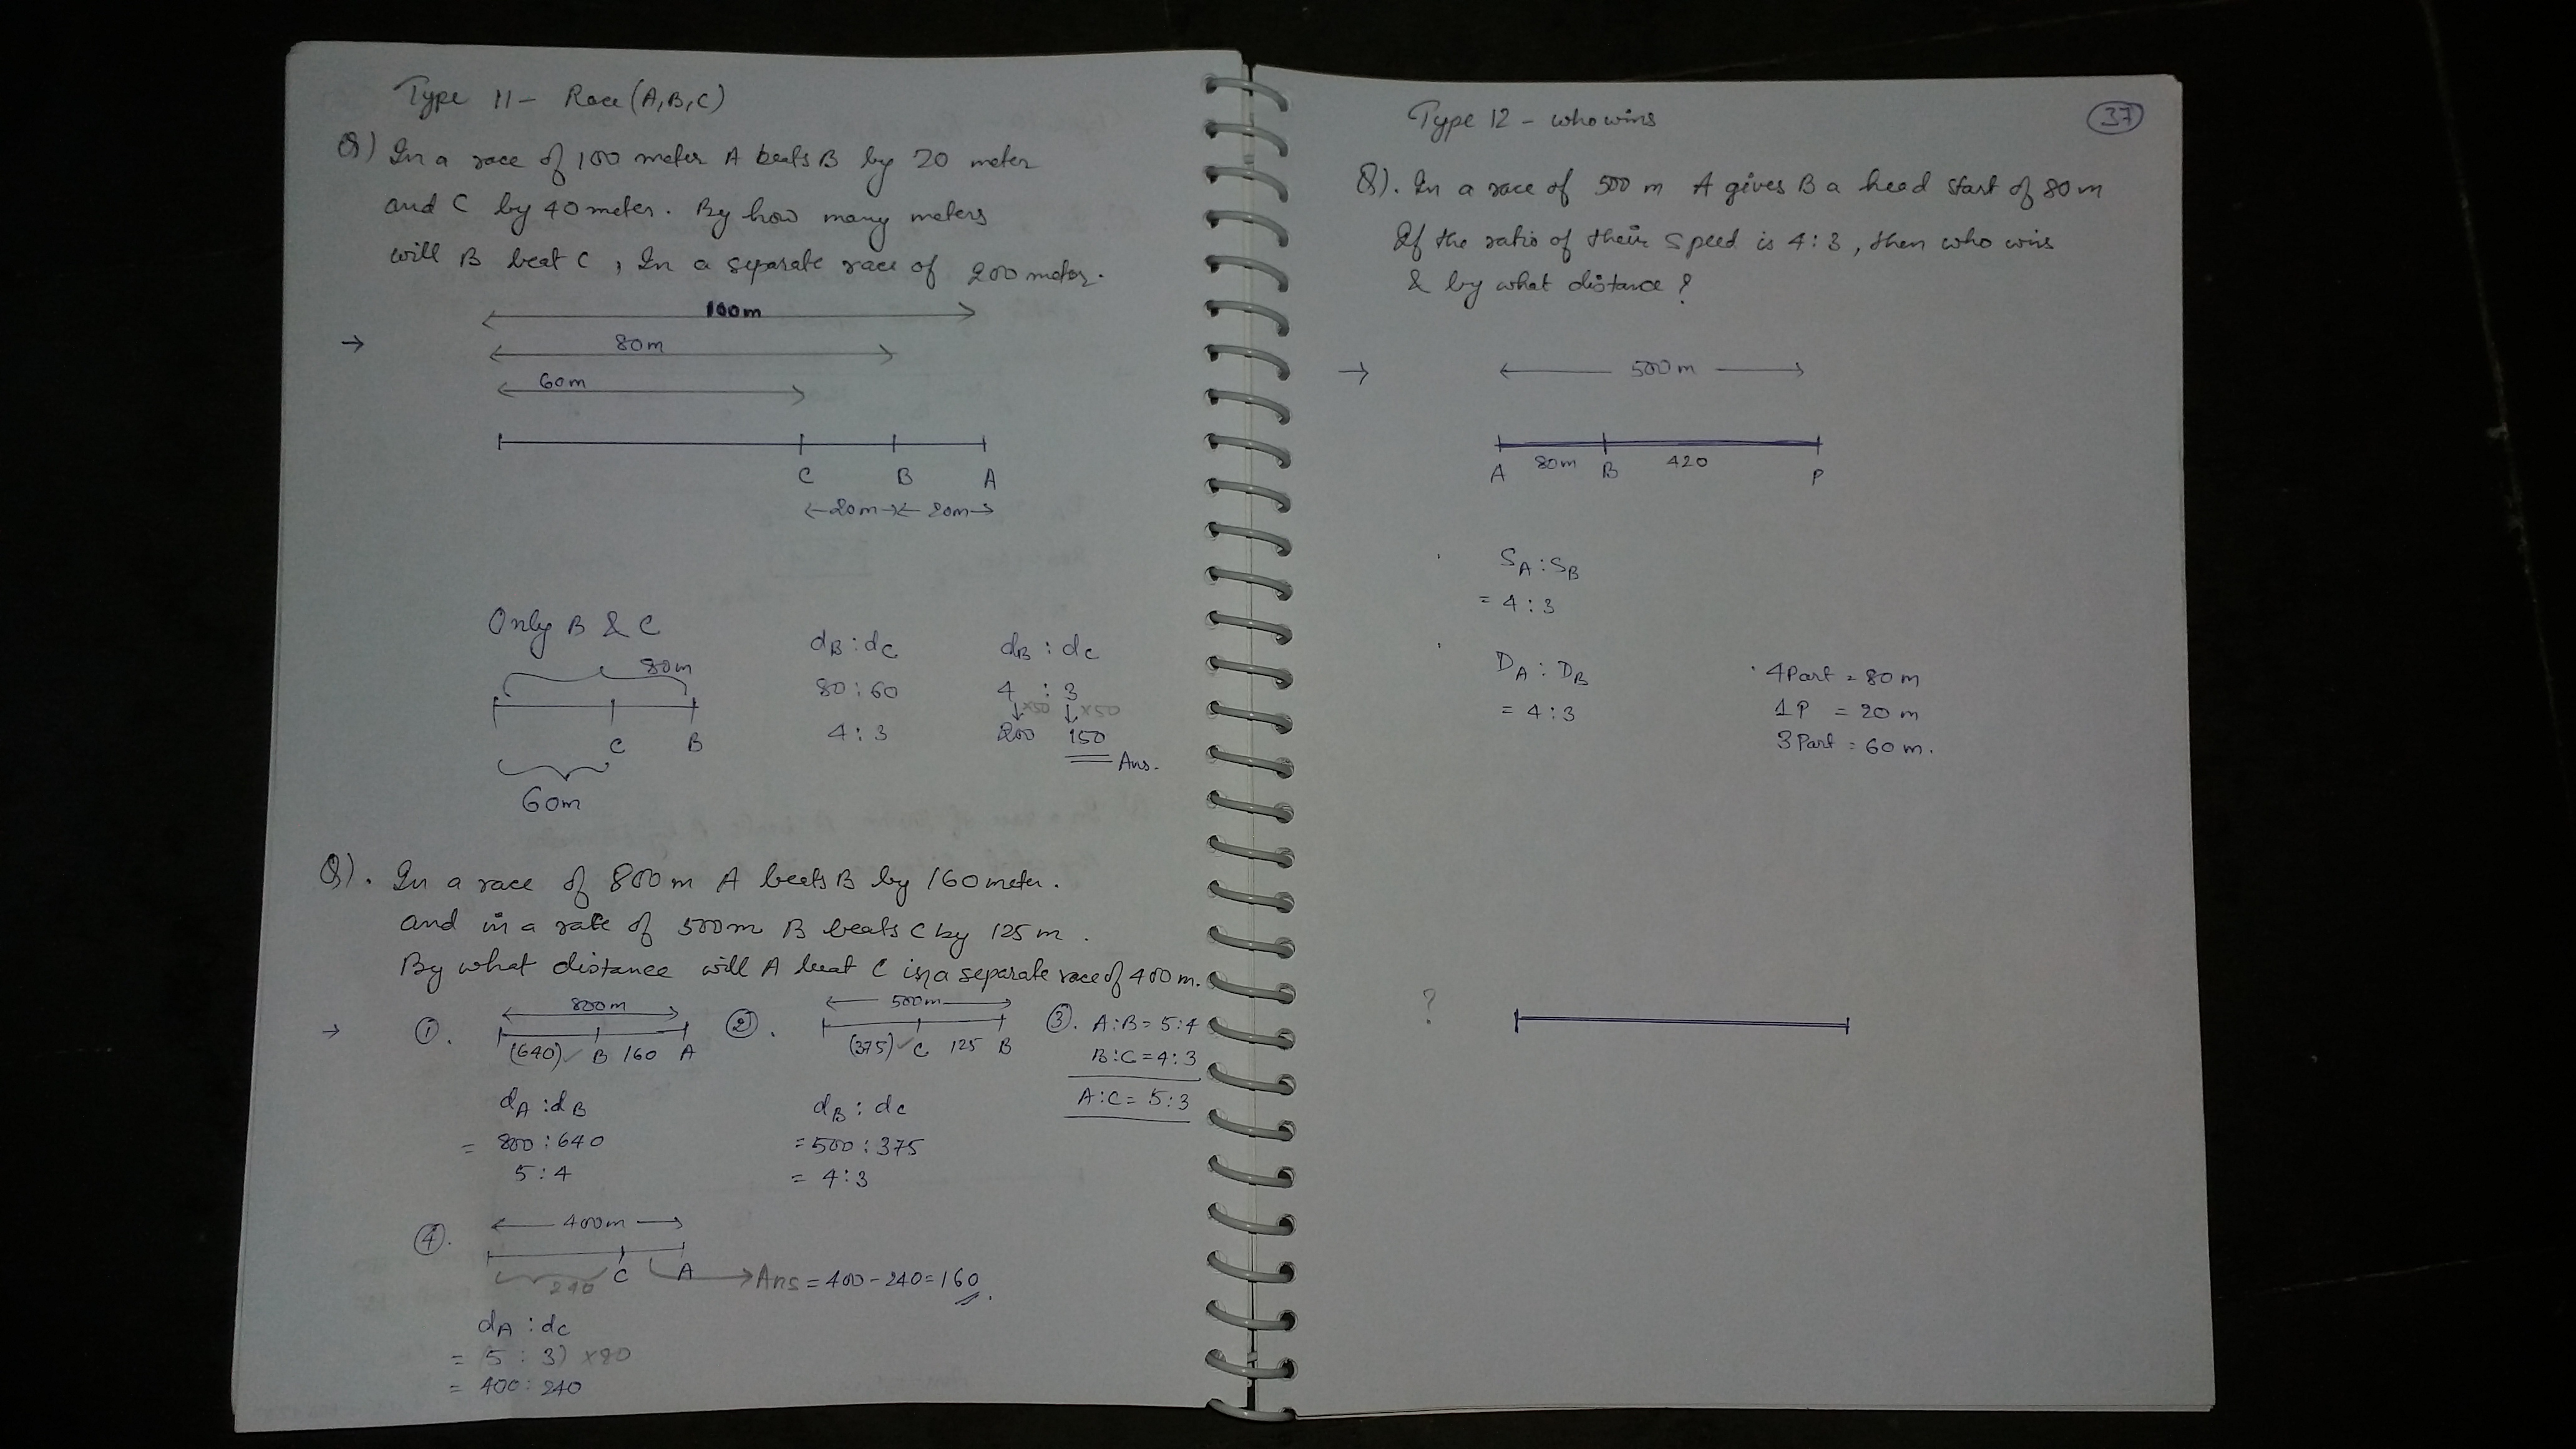 Type 11 - Race (A,B,C)
Q) In a race of 100 meter A beats B by 20 meter
and C by 40 meter. By how many meters
will B beat C, In a separate race of 200 meter.
100m
→ 80m
60m
C B A
20m 20m
Only B & C
80m
C B
60m
dB : dC
80 : 60
4 : 3
dB : dC
4 : 3
↓×50 ↓×50
200 150
Ans.
Q). In a race of 800m A beats B by 160 meter.
and in a rate of 500m B beats C by 125 m.
By what distance will A beat C in a separate race of 400 m.
→ ①. 800m
(640)✓ B 160 A
dA : dB
= 800 : 640
5 : 4
②. 500m
(375)✓ C 125 B
dB : dC
= 500 : 375
= 4 : 3
③. A:B = 5:4
B:C = 4:3
A:C = 5:3
④. 400m
C A
240
Ans = 400 - 240 = 160.
dA : dC
= (5 : 3) ×80
= 400 : 240
37
Type 12 - who wins
Q). In a race of 500 m A gives B a head start of 80m
If the ratio of their speed is 4:3, then who wins
& by what distance ?
→ 500m
A 80m B 420 P
SA : SB
= 4 : 3
DA : DB
= 4 : 3
4 Part = 80 m
1P = 20 m
3 Part = 60 m.
?